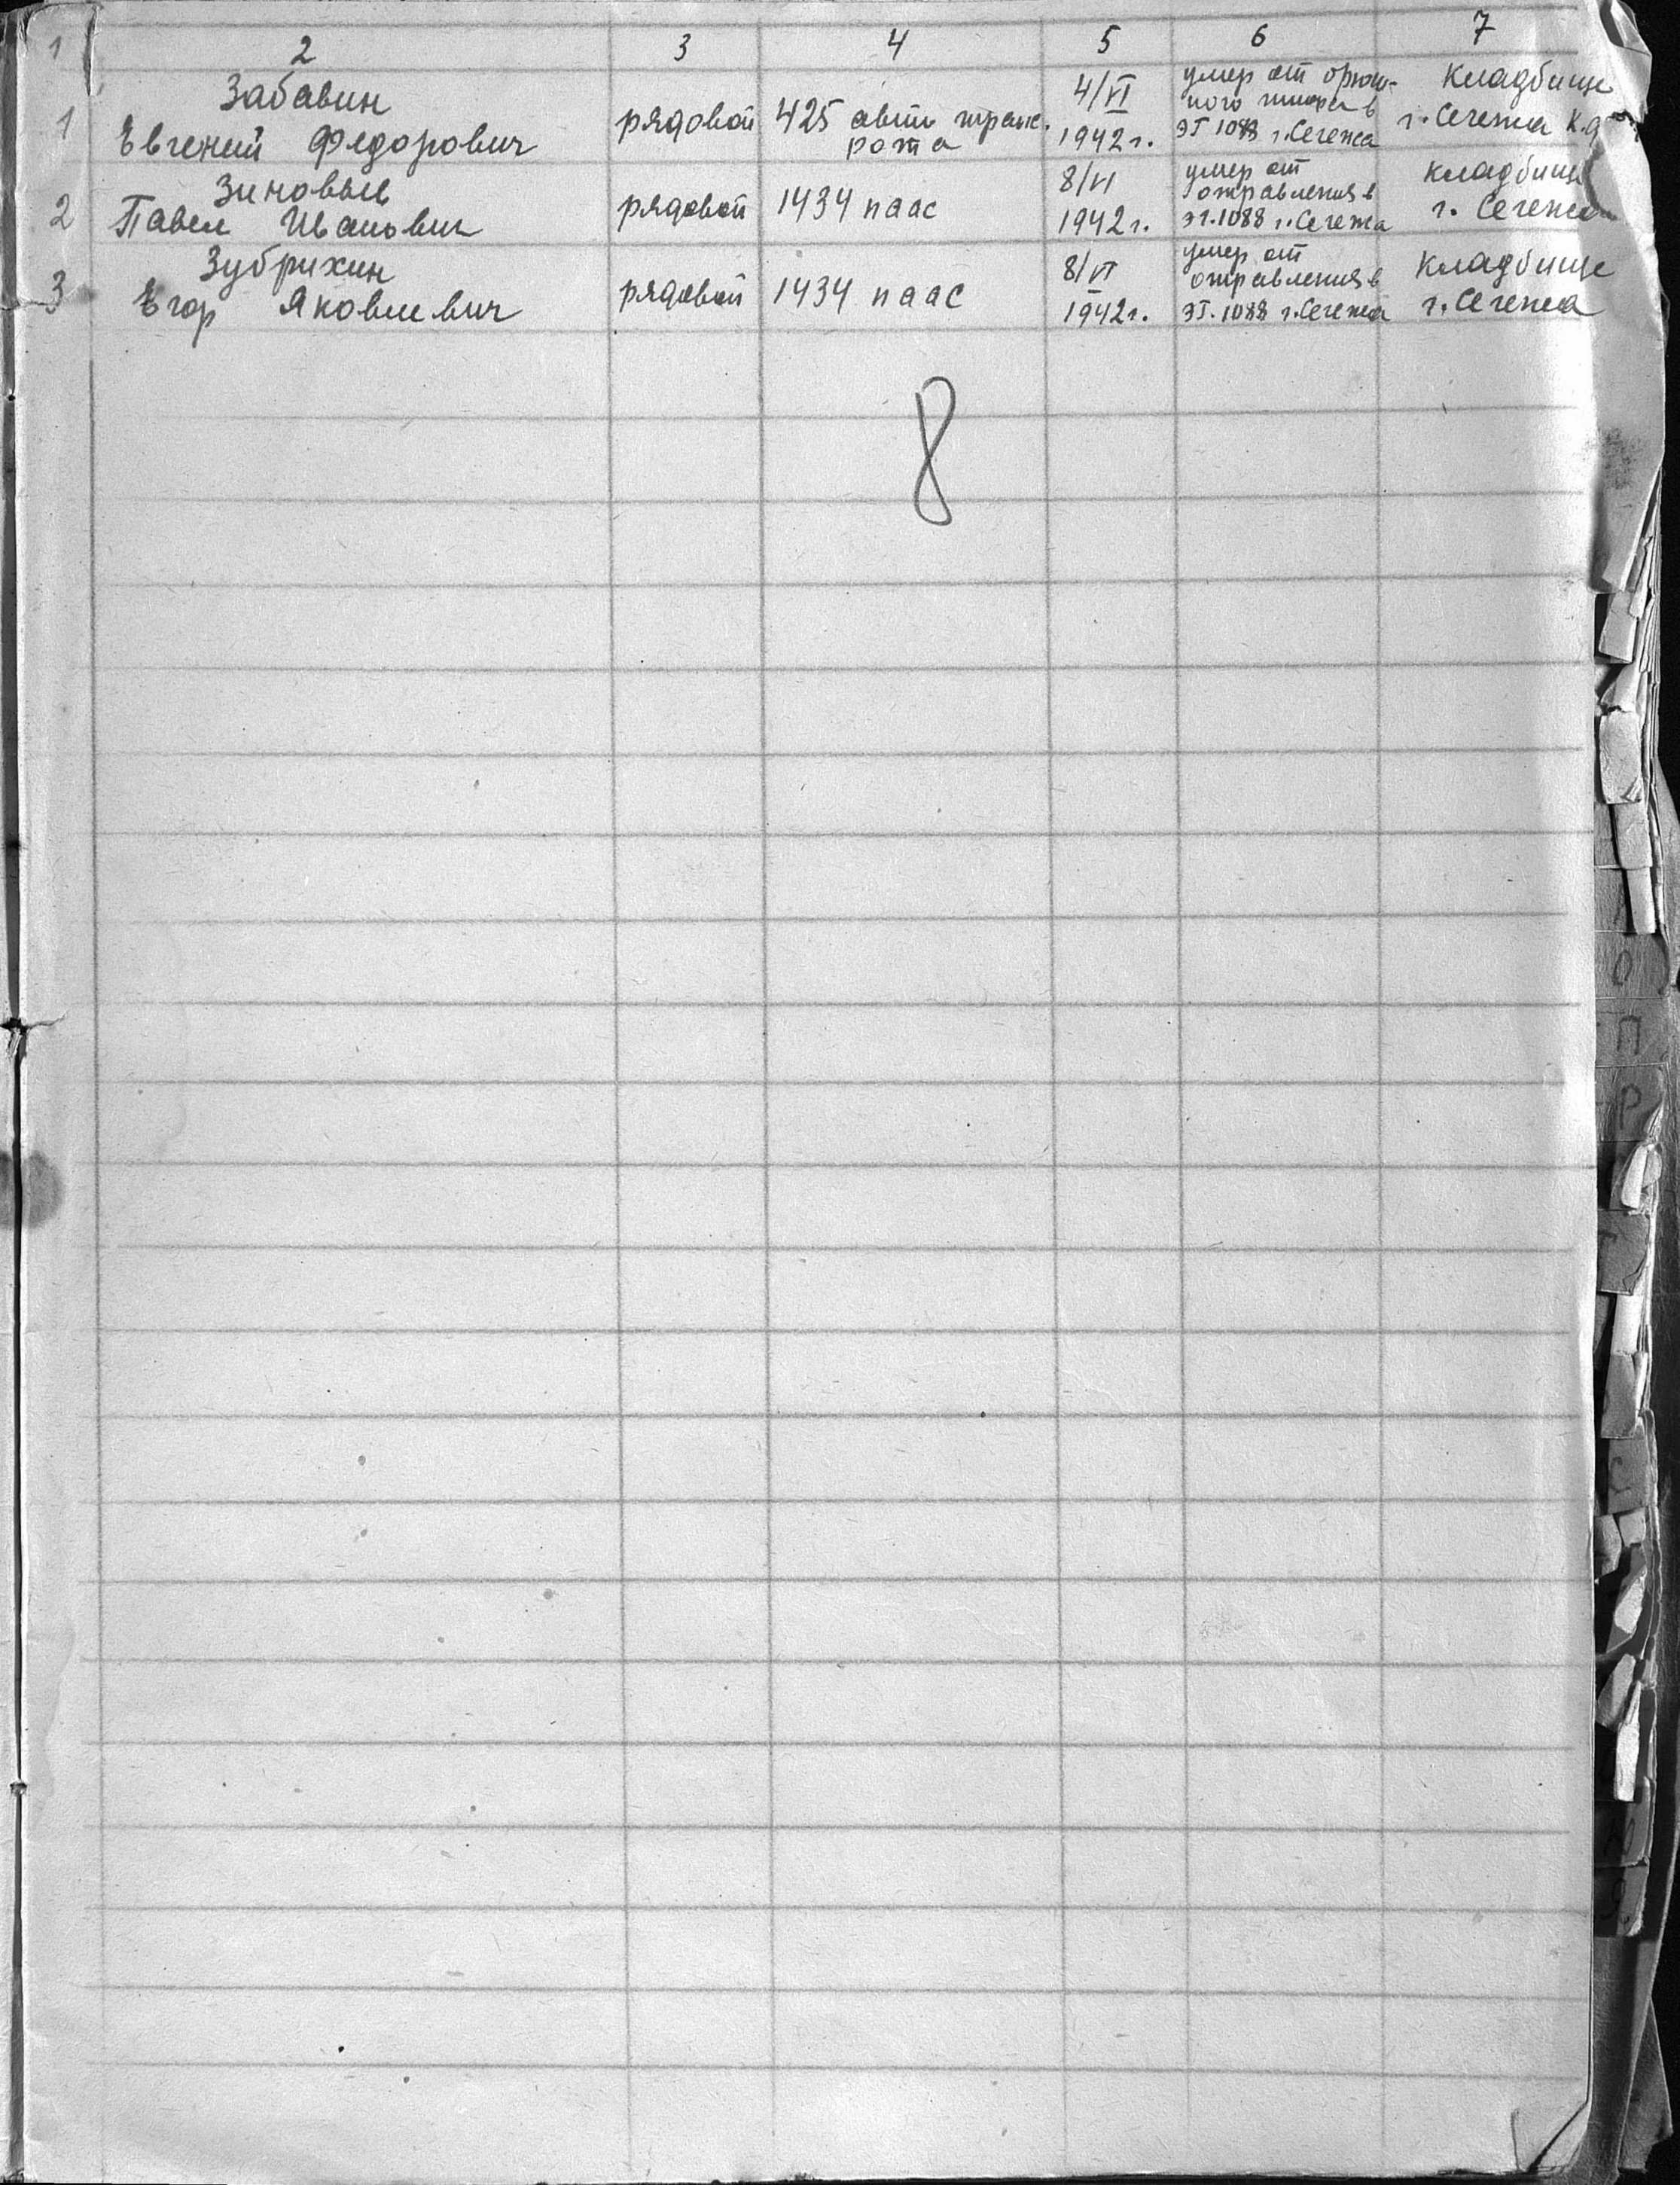 1 2 3 4 5 6 7
Забавин 4/VI умер от брюш- кладбище
1 Евгений Федорович рядовой 425 авто трансп. 1942 г. ного тифа в г. Сегежа К.
рота ЭГ 1088 г. Сегежа
Зиновьев 8/VI умер от кладбище
2 Павел Иванович рядовой 1434 паас 1942 г. отравления в г. Сегежа
ЭГ. 1088 г. Сегежа
Зубрихин 8/VI умер от кладбище
3 Егор Яковлевич рядовой 1434 паас 1942 г. отравления в г. Сегежа
ЭГ. 1088 г. Сегежа
8
О
П
Р
С